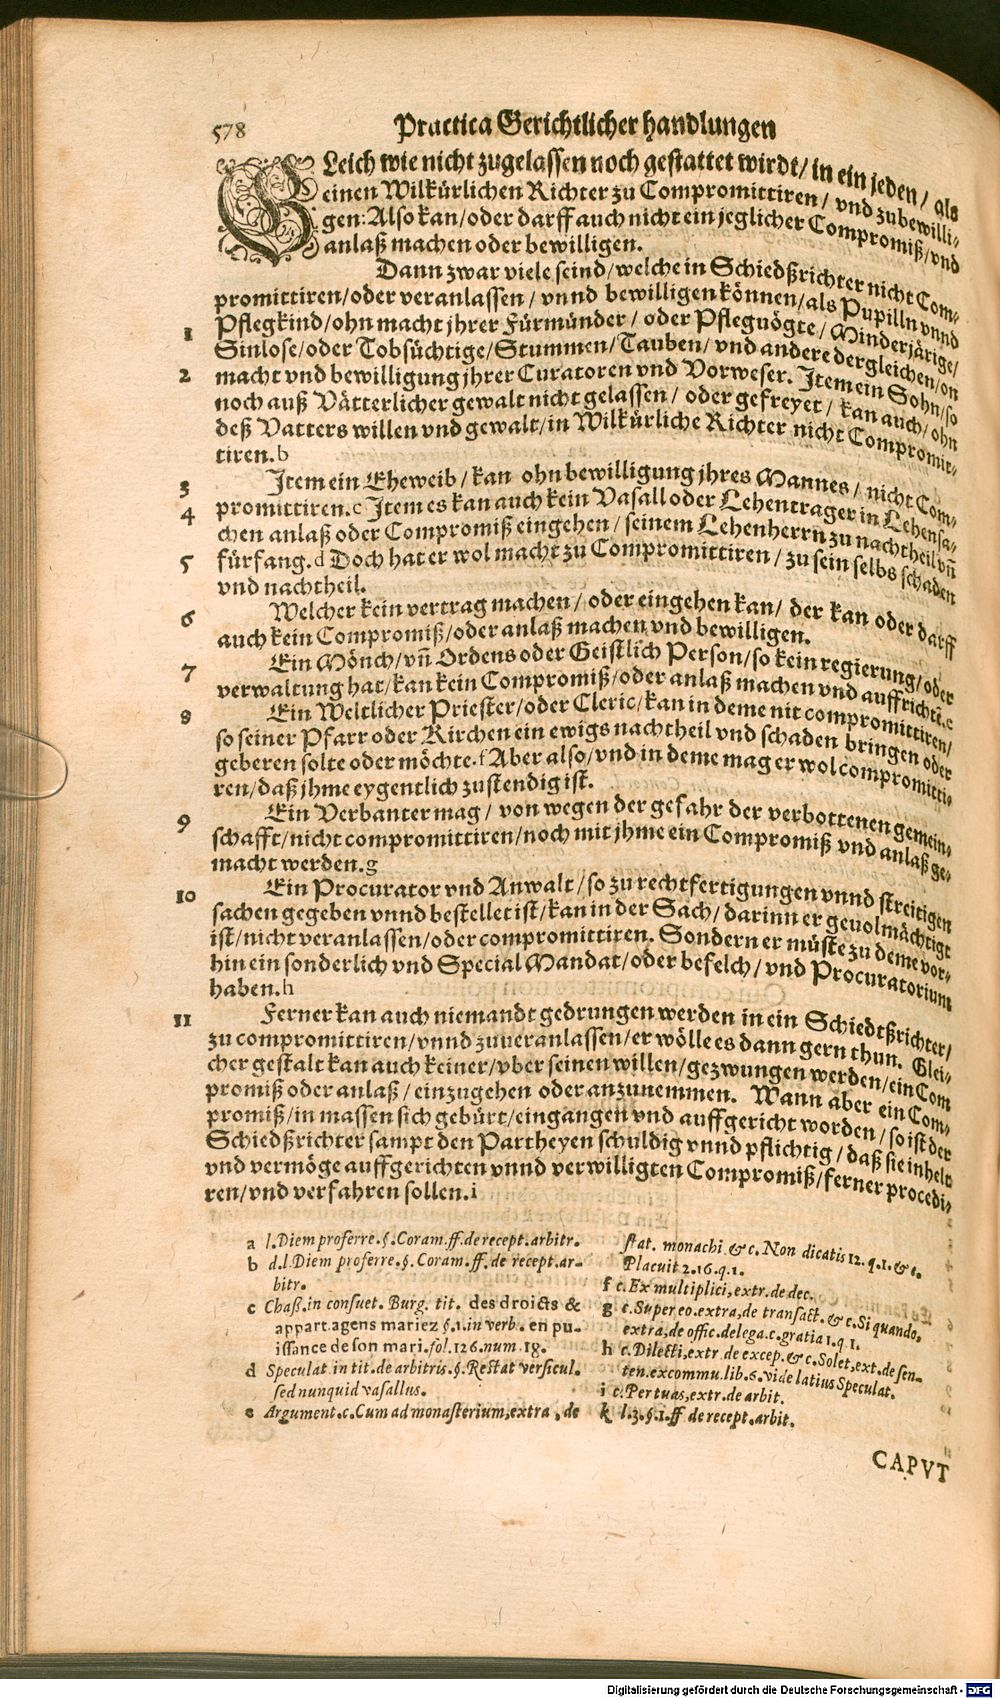 578 Practica Gerichtlicher handlungen
GLeich wie nicht zugelassen noch gestattet wirdt/ in ein jeden/ als
einen Wilkürlichen Richter zu Compromittiren/ vnd zubewilli-
gen: Also kan/oder darff auch nicht ein jeglicher Compromiß/vnd
anlaß machen oder bewilligen.
Dann zwar viele seind/welche in Schiedßrichter nicht Com-
promittiren/oder veranlassen/ vnnd bewilligen können/als Pupilln vnnd
1 Pflegkind/ohn macht jhrer Fürmünder/ oder Pfleguögte/ Minderjärige/
Sinlose/oder Tobsüchtige/Stummen/Tauben/ vnd andere dergleichen/on
2 macht vnd bewilligung jhrer Curatoren vnd Vorweser. Item ein Sohn/so
noch auß Vätterlicher gewalt nicht gelassen/ oder gefreyet/ kan auch/ohn
deß Vatters willen vnd gewalt/in Wilkürliche Richter nicht Compromit-
tiren.b
3 Item ein Eheweib/kan ohn bewilligung jhres Mannes/ nicht Com-
4 promittiren.c Item es kan auch kein Vasall oder Lehentrager in Lehensa-
chen anlaß oder Compromiß eingehen/ seinem Lehenherrn zu nachtheil vñ
5 fürfang.d Doch hat er wol macht zu Compromittiren/ zu sein selbs schaden
vnd nachtheil.
6 Welcher kein vertrag machen/ oder eingehen kan/ der kan oder darff
auch kein Compromiß/oder anlaß machen vnd bewilligen.
7 Ein Mönch/vñ Ordens oder Geistlich Person/so kein regierung/oder
verwaltung hat/kan kein Compromiß/oder anlaß machen vnd auffrichtē.e
8 Ein Weltlicher Priester/oder Cleric/kan in deme nit compromittiren/
so seiner Pfarr oder Kirchen ein ewigs nachtheil vnd schaden bringen oder
geberen solte oder möchte.f Aber also/vnd in deme mag er wol compromitti-
ren/daß jhme eygentlich zustendig ist.
9 Ein Verbanter mag/ von wegen der gefahr der verbottenen gemein-
schafft/nicht compromittiren/noch mit jhme ein Compromiß vnd anlaß ge-
macht werden.g
10 Ein Procurator vnd Anwalt/so zu rechtfertigungen vnnd streitigen
sachen gegeben vnnd bestellet ist/kan in der Sach/ darinn er geuolmächtigt
ist/nicht veranlassen/oder compromittiren. Sondern er müste zu deme vor-
hin ein sonderlich vnd Special Mandat/oder befelch/ vnd Procuratorium
haben.h
11 Ferner kan auch niemandt gedrungen werden in ein Schiedtßrichter/
zu compromittiren/vnnd zuueranlassen/er wölle es dann gern thun. Glei-
cher gestalt kan auch keiner/vber seinen willen/gezwungen werden/ein Com
promiß oder anlaß/ einzugehen oder anzunemmen. Wann aber ein Com-
promiß/in massen sich gebürt/eingangen vnd auffgericht worden/so ist der
Schiedßrichter sampt den Partheyen schuldig vnnd pflichtig/ daß sie inhelt
vnd vermöge auffgerichten vnnd verwilligten Compromiß/ferner procedi-
ren/vnd verfahren sollen.i
a l.Diem proferre.§.Coram.ff.de recept.arbitr.
b d.l.Diem proferre.§.Coram.ff.de recept.ar-
bitr.
c Chaß.in consuet. Burg. tit. des droicts &
appart.agens mariez §.1.in verb. en pu-
issance de son mari.fol.126.num.18.
d Speculat.in tit.de arbitris.§.Restat versicul.
sed nunquid vasallus.
e Argument.c.Cum ad monasterium,extra, de
stat. monachi & c. Non dicatis 12. q.1.& c.
Placuit 2.16.q.1.
f c.Ex multiplici,extr.de dec.
g c.Super eo.extra,de transact. & c.Si quando.
extra,de offic.delega.c.gratia 1. q 1.
h c.Dilecti,extr.de excep. & c.Solet,ext.de sen-
ten.excommu.lib.6.vide latius Speculat.
i c.Per tuas,extr.de arbit.
k l.3.§.1.ff de recept.arbit.
CAPVT
Digitalisierung gefördert durch die Deutsche Forschungsgemeinschaft - DFG